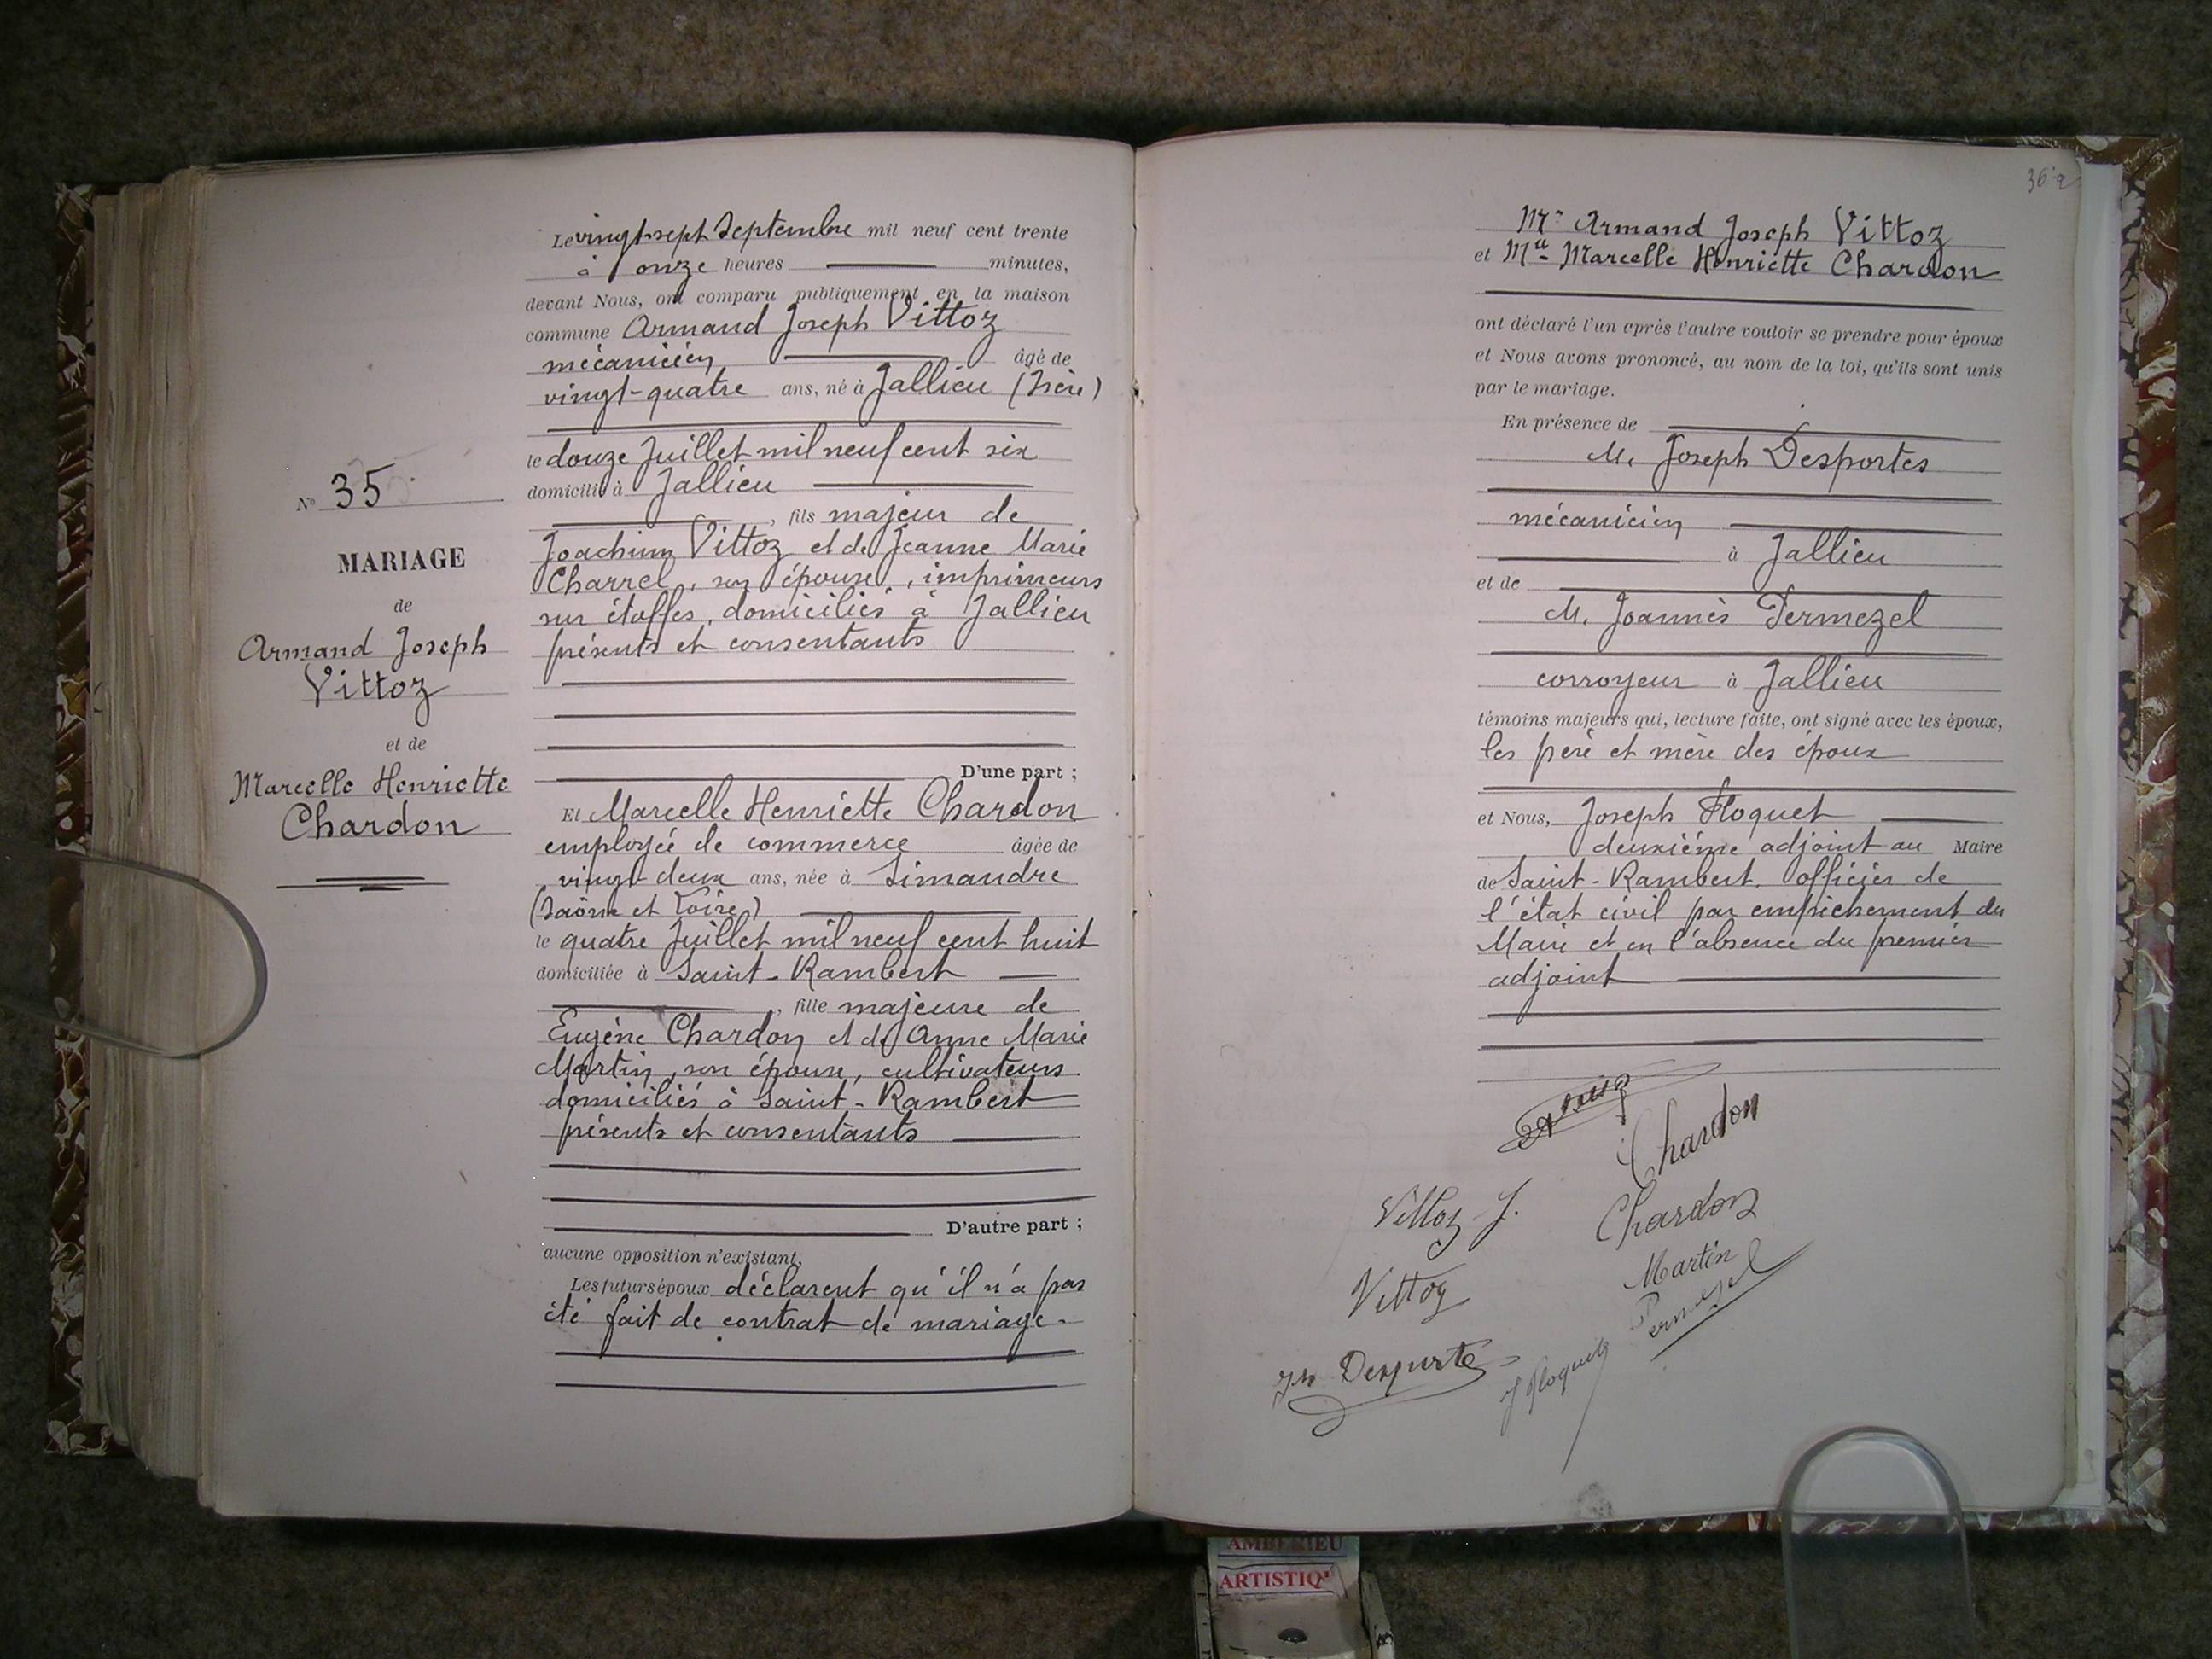 Le vingt-sept Septembre mil neuf cent trente
à onze heures minutes,
devant Nous, ont comparu publiquement en la maison
commune Armand Joseph Vittoz
mécanicien âgé de
vingt-quatre ans, né à Jallieu (Isère)
le douze Juillet mil neuf cent six
domicilié à Jallieu
, fils majeur de
Joachim Vittoz et de Jeanne Marie
Charrel, son épouse, imprimeurs
sur étoffes, domiciliés à Jallieu
présents et consentants
D'une part ;
Et Marcelle Henriette Chardon
employée de commerce âgée de
vingt-deux ans, née à Simandre
(Saône et Loire)
le quatre Juillet mil neuf cent huit
domiciliée à Saint-Rambert
, fille majeure de
Eugène Chardon et de Anne Marie
Martin, son épouse, cultivateurs
domiciliés à Saint-Rambert
présents et consentants
D'autre part ;
aucune opposition n'existant.
Les futurs époux déclarent qu'il n'a pas
été fait de contrat de mariage.
N° 35
MARIAGE
de
Armand Joseph
Vittoz
et de
Marcelle Henriette
Chardon
Mr Armand Joseph Vittoz
et Mlle Marcelle Henriette Chardon
ont déclaré l'un après l'autre vouloir se prendre pour époux
et Nous avons prononcé, au nom de la loi, qu'ils sont unis
par le mariage.
En présence de
M. Joseph Desportes
mécanicien
à Jallieu
et de
M. Joannès Permezel
corroyeur à Jallieu
témoins majeurs qui, lecture faite, ont signé avec les époux,
les père et mère des époux
et Nous, Joseph Floquet
deuxième adjoint au Maire
de Saint-Rambert. officier de
l'état civil par empêchement du
Maire et en l'absence du premier
adjoint
Chardon
Vittoz J.
Chardon
Martin
Vittoz
Permezel
Jh Desportes
J Floquet
AMBERIEU
ARTISTIQ